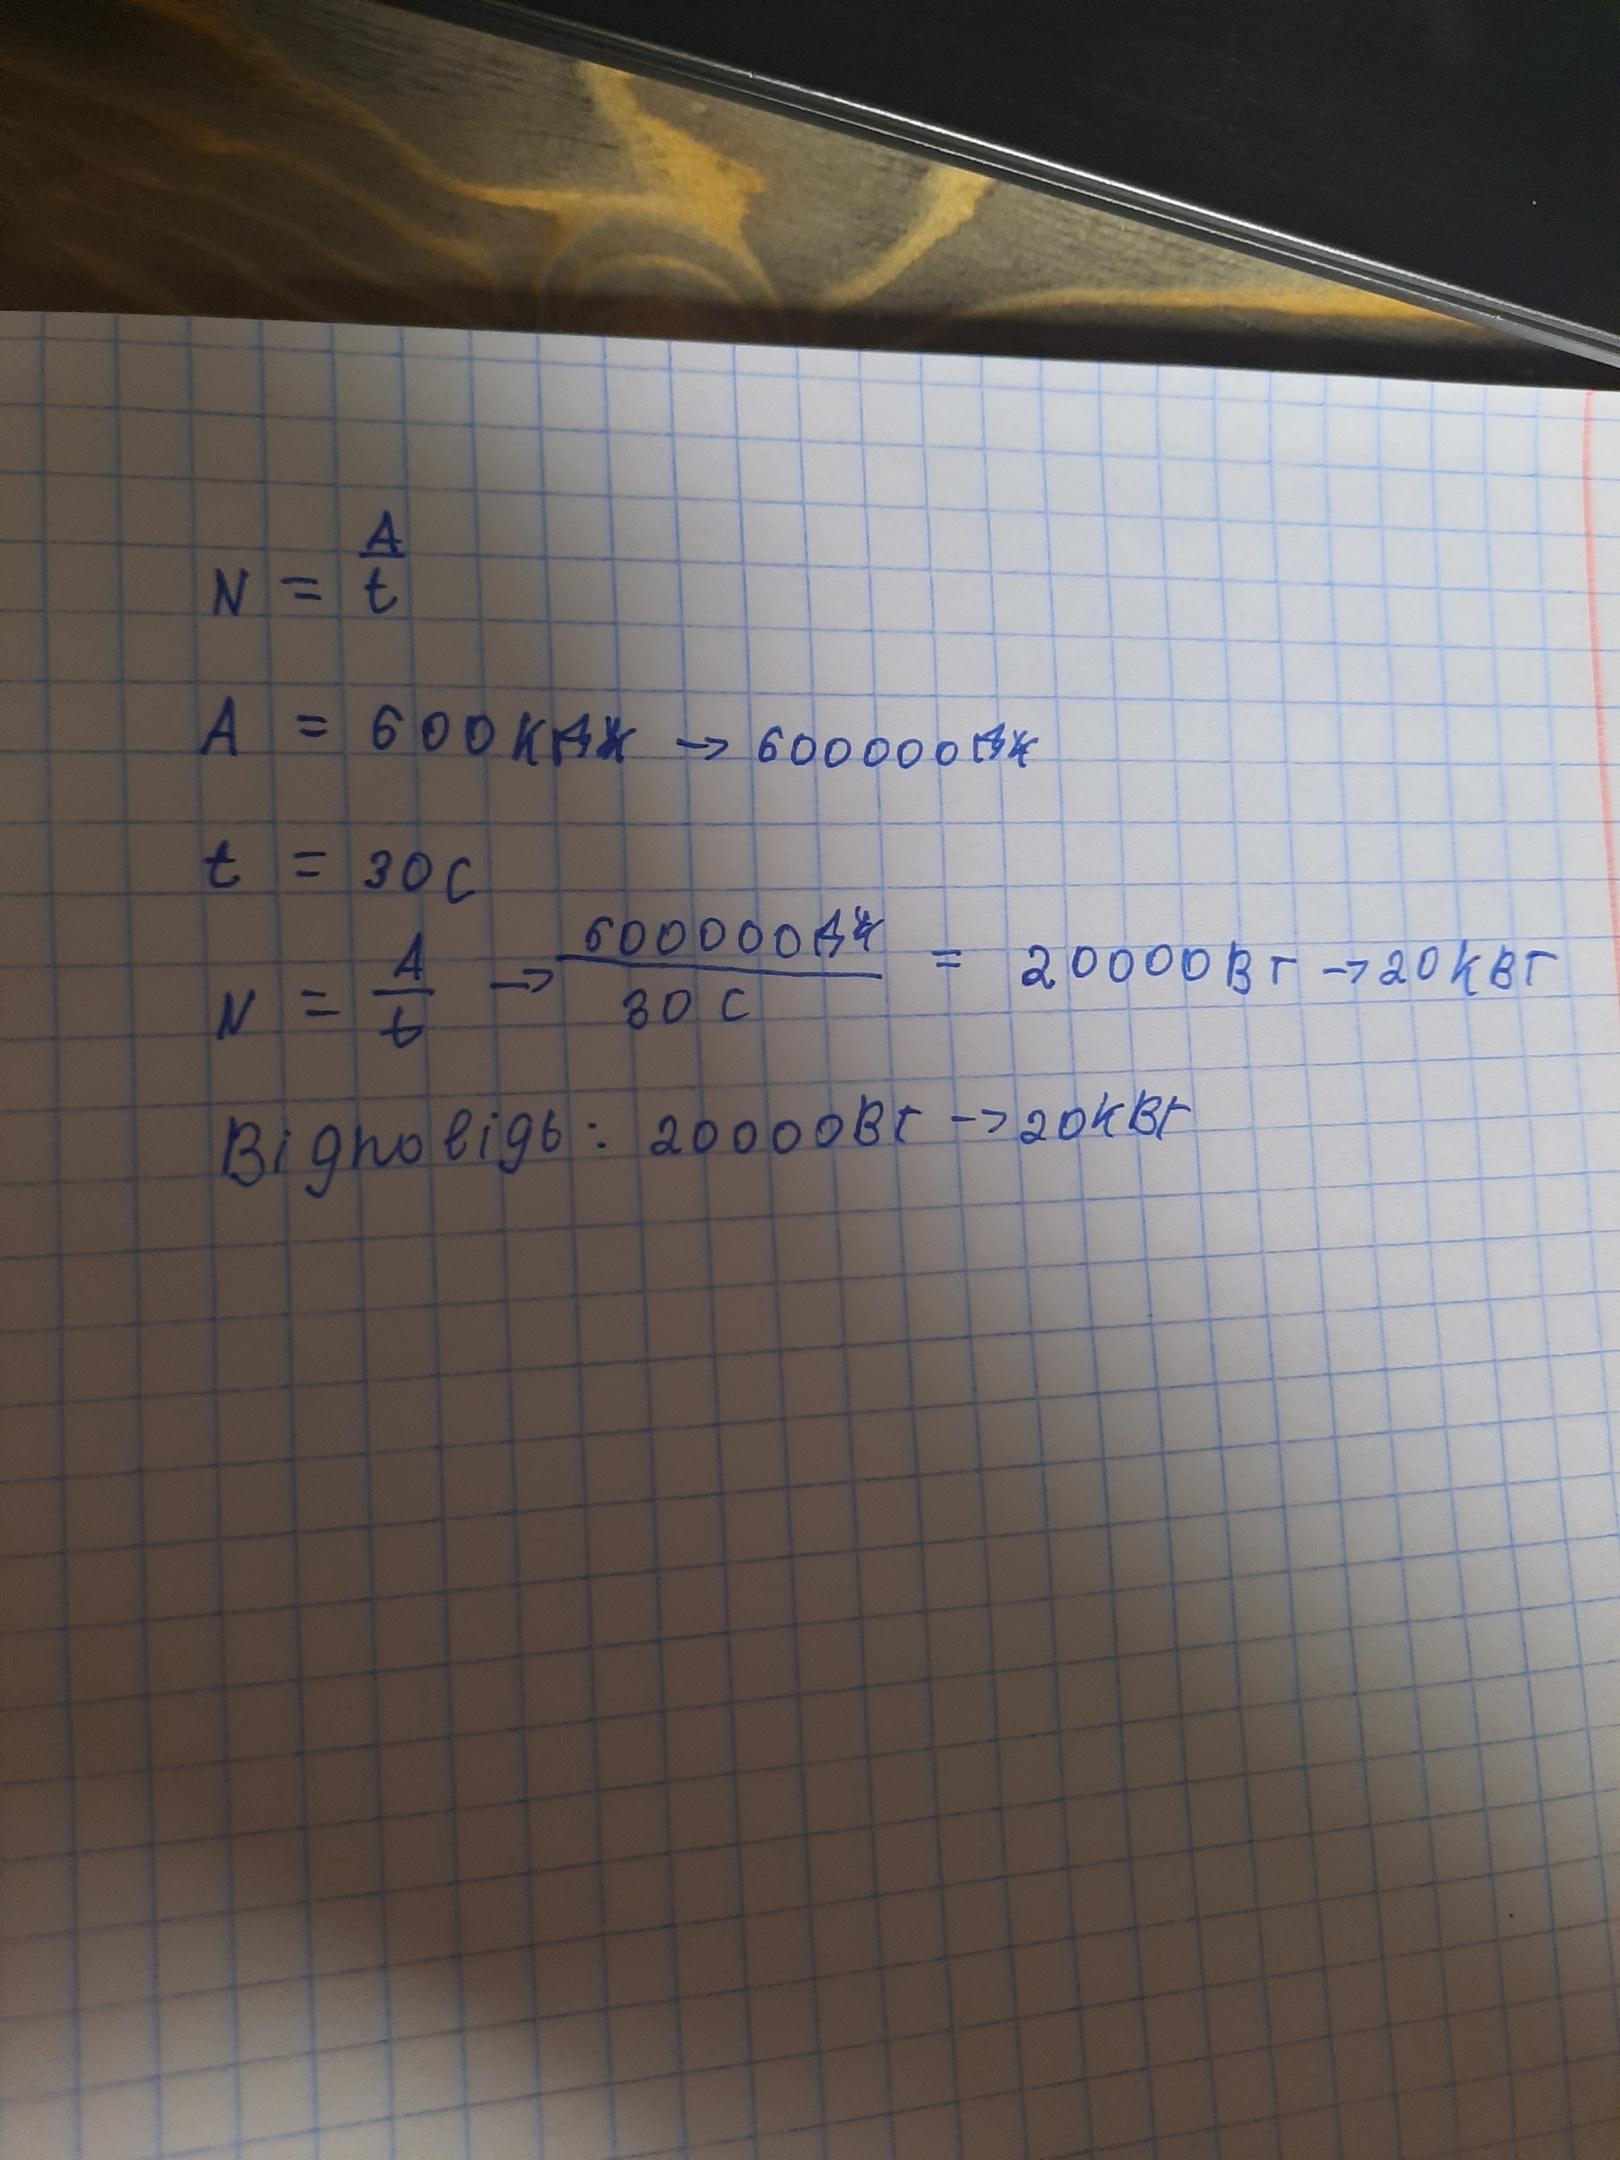 N = A/t
A = 600кДж → 600000Дж
t = 30с
N = A/t → 600000Дж/30 с = 20000Вт → 20кВт
Відповідь: 20000Вт → 20кВт